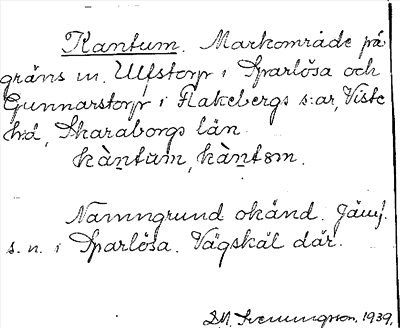 Kantum. Markområde på
gräns m. Ulfstorp i Sparlösa och
Gunnarstorp i Flakebergs s:ar, Viste
hd, Skaraborgs län
kàntum, kàntəm.
Namngrund okänd. Jämf.
s. n. i Sparlösa. Vägskäl där.
D.N. Svenungsson. 1939.